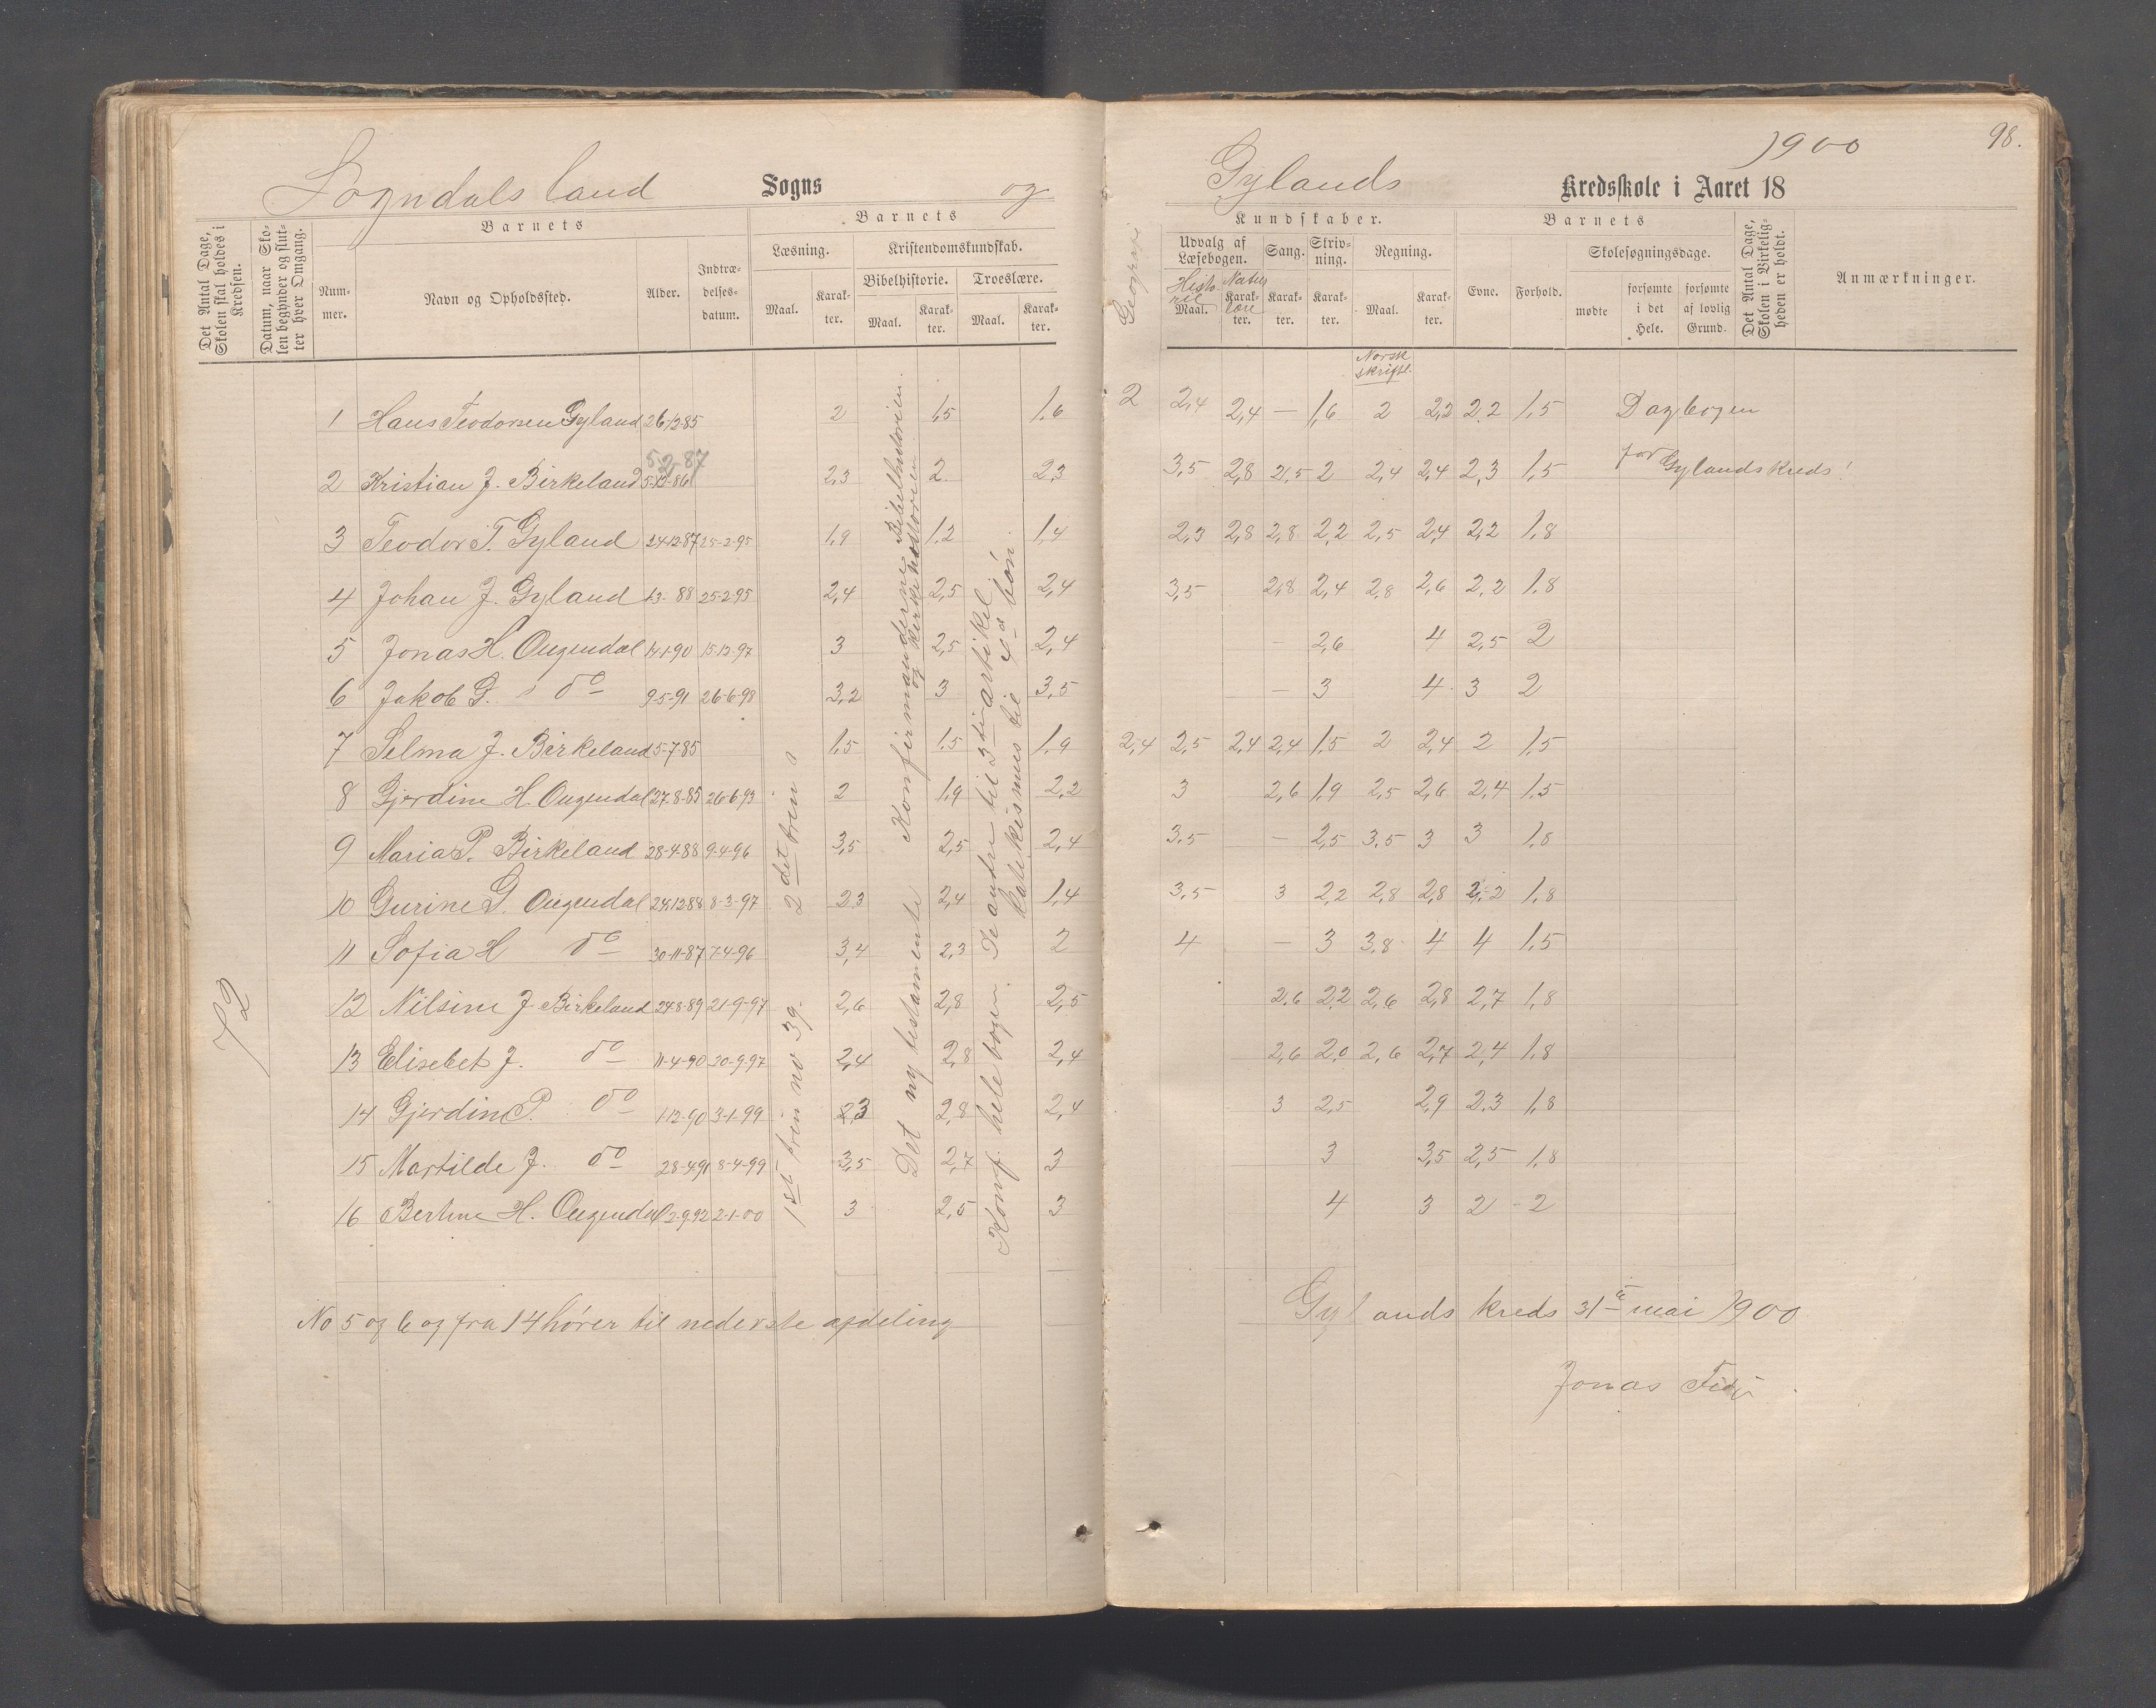 1900
98.
Sogndals land Sogns og
Gylands Kredsskole i Aaret 18
Det Antal Dage, Skolen skal holdes i Kredsen.
Datum, naar Skolen begynder og slutter hver Omgang.
Barnets
Nummer.
Navn og Opholdssted.
Alder.
Indtrædelsesdatum.
Barnets
Læsning.
Maal.
Karakter.
Kristendomskundskab.
Bibelhistorie.
Maal.
Karakter.
Troeslære.
Maal.
Karakter.
Kundskaber.
Udvalg af Læsebogen.
Historie
Maal.
Naturlære
Karakter.
Sang.
Karakter.
Skrivning.
Karakter.
Regning.
Maal.
Karakter.
Barnets
Evne.
Forhold.
Skolesøgningsdage.
mødte
forsømte i det Hele.
forsømte af lovlig Grund.
Det Antal Dage, Skolen i Virkeligheden er holdt.
Anmærkninger.
Norsk skriftl.
1 Hans Teodorsen Gyland 26-12-85 2 1,5 1,6 2 2,4 2,4 – 1,6 2 2,2 2,2 1,5 Dagbogen
5-2-87
2 Kristian J. Birkeland 5-12-86 2,3 2 2,3 3,5 2,8 2,5 2 2,4 2,4 2,3 1,5 for Gylands kreds!
3 Teodor T. Gyland 24-12-87 25-2-95 1,9 1,2 1,4 2,3 2,8 2,8 2,2 2,5 2,4 2,2 1,8
4 Johan J. Gyland 1-3-88 25-2-95 2,4 2,5 2,4 3,5 2,8 2,4 2,8 2,6 2,2 1,8
5 Jonas H. Ougendal 14-1-90 15-12-97 3 2,5 2,4 – 2,6 4 2,5 2
6 Jakob G. do 9-5-91 26-6-98 3,2 3 3,5 – 3 4 3 2
7 Selma J. Birkeland 5-7-85 1,5 1,5 1,9 2,4 2,5 2,4 2,4 1,5 2 2,4 2 1,5
8 Gjerdine H. Ougendal 27-8-85 26-6-93 2 1,9 2,2 3 2,6 1,9 2,5 2,6 2,4 1,5
9 Maria P. Birkeland 28-4-88 9-4-96 3,5 2,5 2,4 3,5 – 2,5 3,5 3 3 1,8
10 Gurine G. Ougendal 24-12-88 8-3-97 2,3 2,4 1,4 3,5 3 2,2 2,8 2,8 2,2 1,8
11 Sofia H do 30-11-87 7-4-96 3,4 2,3 2 4 – 3 3,8 4 4 1,5
12 Nilsine J. Birkeland 24-8-89 21-9-97 2,6 2,8 2,5 2,6 2,2 2,6 2,8 2,7 1,8
13 Elisebet J. do 11-4-90 20-9-97 2,4 2,8 2,4 2,6 2,0 2,6 2,7 2,4 1,8
14 Gjerdine P. do 1-12-90 3-1-99 2,3 2,8 2,4 3 2,5 2,9 2,3 1,8
15 Martilde J. do 28-4-91 8-4-99 3,5 2,7 3 3 3,5 2,5 1,8
16 Bertine H. Ougendal 2-9-92 2-1-00 3 2,5 3 4 3 2 2
72
1st trin no 39. 2det trin
Det ny testamente Konfirmanderne Bibelhistorien og kirkehistorien
Konf. hele bogen. De andre til 3die artikel katekismus til 4de bøn.
No 5 og 6 og fra 14 hører til nederste afdeling
Gylands kreds 31te mai 1900
Jonas